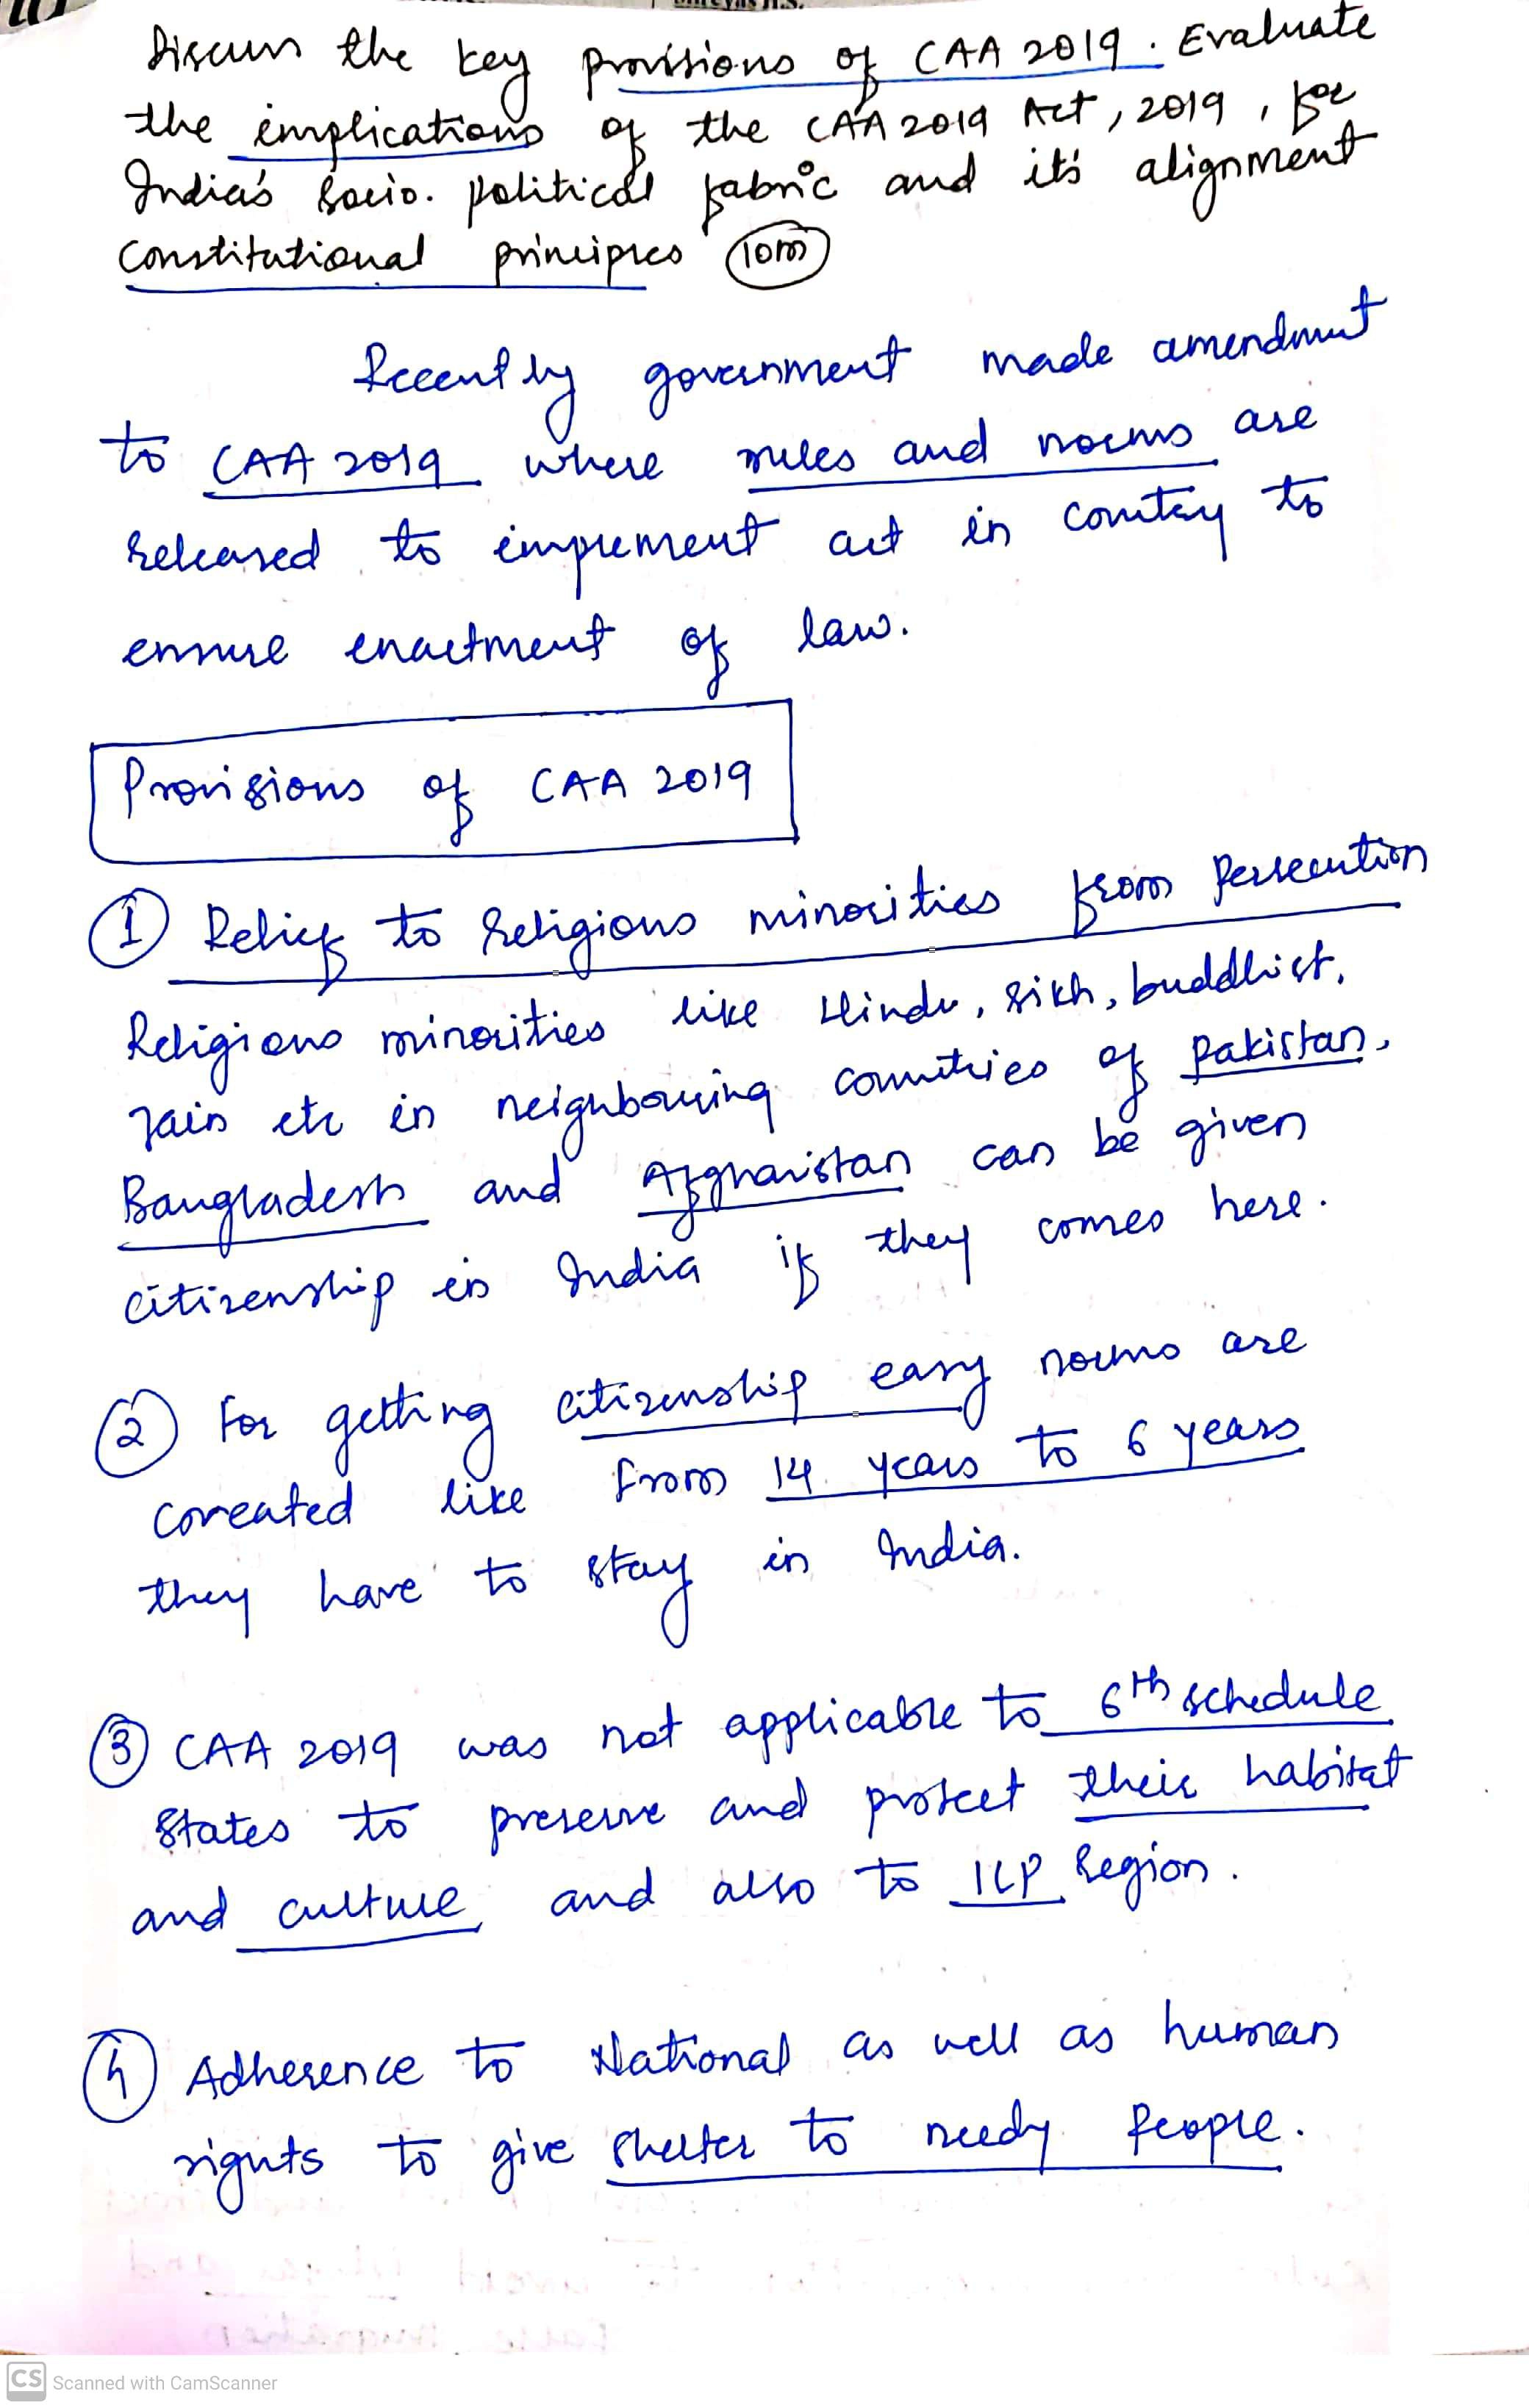 Discuss the key provisions of CAA 2019. Evaluate
the implications of the CAA 2019 Act, 2019, for
India's socio. political fabric and it's alignment
constitutional principles 10m
Recently government made amendment
to CAA 2019 where rules and norms are
released to implement act in country to
ensure enactment of law.
Provisions of CAA 2019
1 Relief to religious minorities from Persecution
Religious minorities like Hindu, Sikh, buddhist,
Jain etc in neighbouring countries of Pakistan,
Bangladesh and Afghanistan can be given
citizenship in India if they comes here.
2 For getting citizenship easy norms are
coreated like from 14 years to 6 years
they have to stay in India.
3 CAA 2019 was not applicable to 6th schedule
states to preserve and protect their habitat
and culture and also to ILP region.
4 Adherence to National as well as human
rights to give shelter to needy People.
CS Scanned with CamScanner